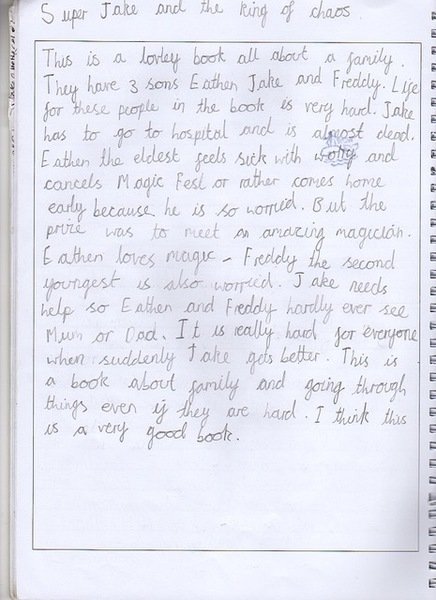 Super Jake and the King of chaos.
This is a lovley book all about a family.
They have 3 sons Eathen Jake and Freddy. Life
for these people in the book is very hard. Jake
has to go to hospital and is almost dead.
Eathen the eldest feels sick with and
cancels Magic Fest or rather comes home
early because he is so worried. But the
prize was to meet an amazing magician.
Eathen loves magic - Freddy the second
youngest is also worried. Jake needs
help so Eathen and Freddy hardly ever see
Mum or Dad. It is really hard for everyone
when suddenly Jake gets better. This is
a book about family and going through
things even if they are hard. I think this
is a very good book.